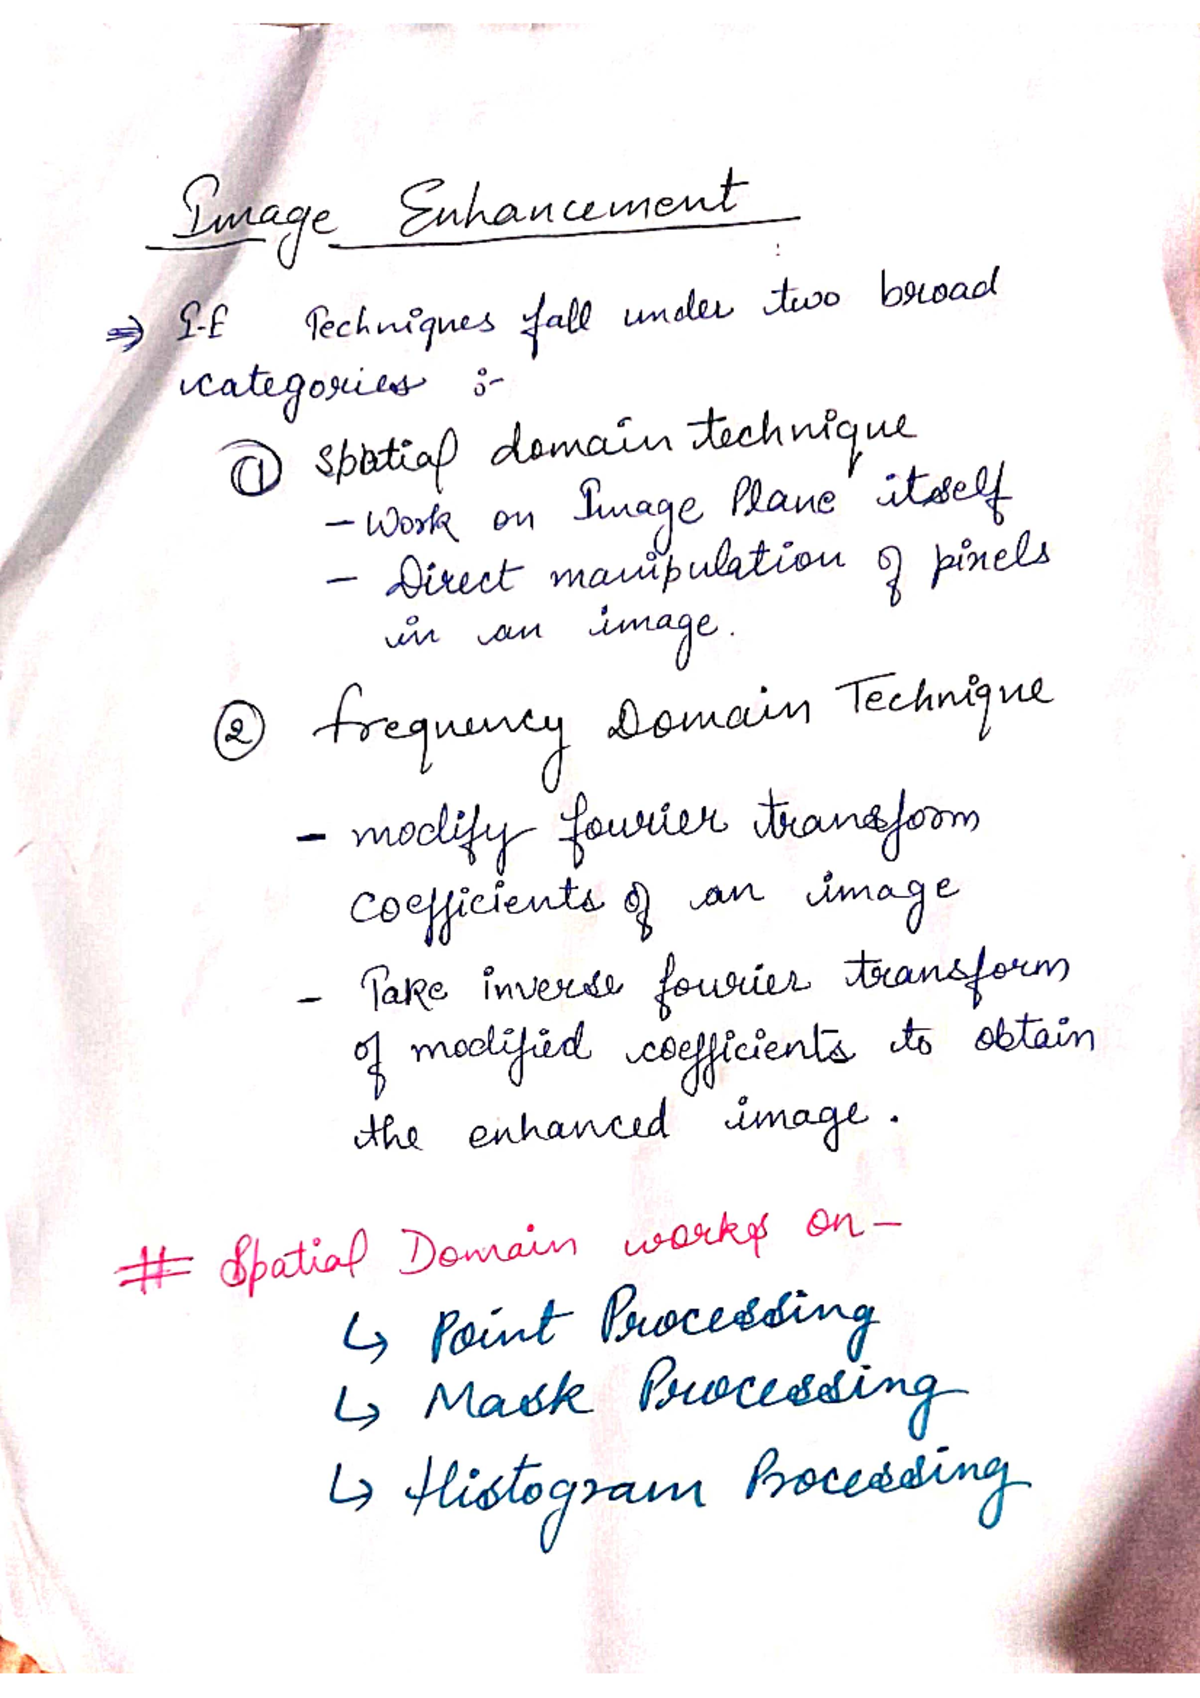 Image Enhancement
⇒ I-E Techniques fall under two broad
categories :-
① Spatial domain technique
- Work on Image Plane itself
- Direct manipulation of pixels
in an image.
② frequency Domain Technique
- modify fourier transform
coefficients of an image
- Take inverse fourier transform
of modified coefficients to obtain
the enhanced image.
# Spatial Domain works on -
↳ Point Processing
↳ Mask Processing
↳ Histogram Processing